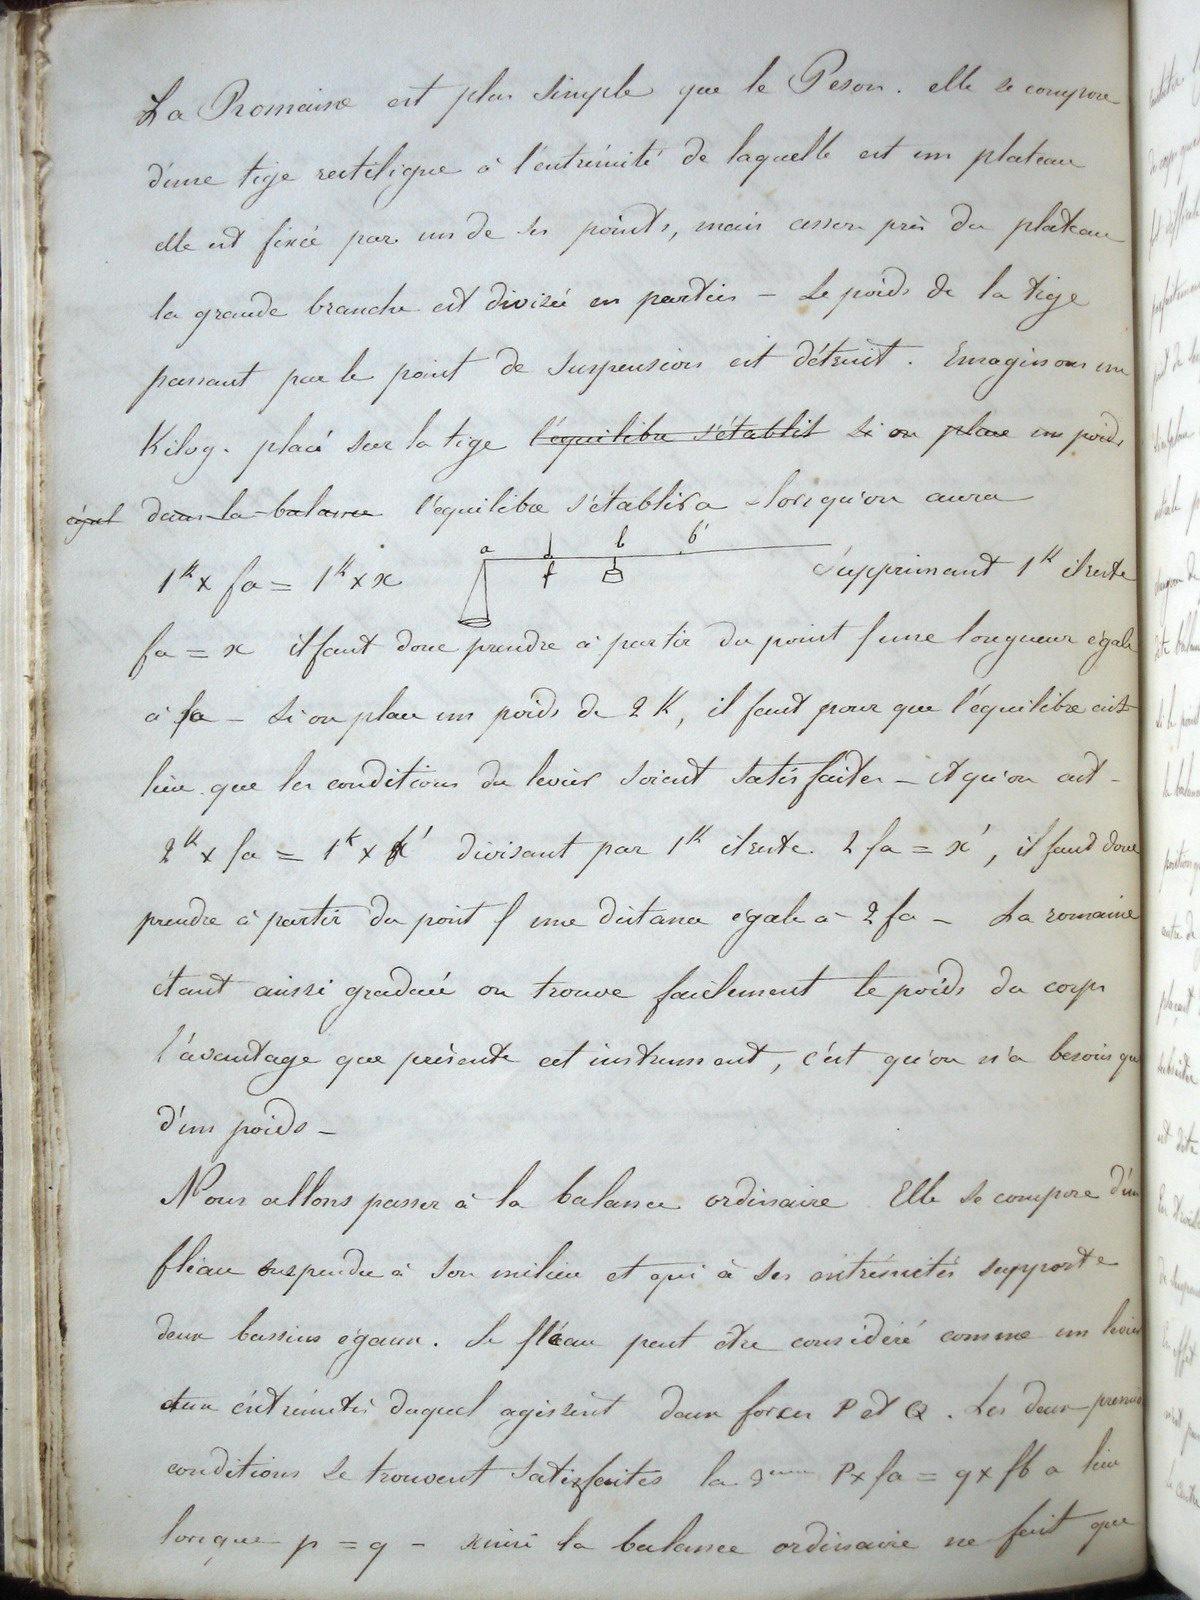 La Romaine est plus simple que le Peson. elle se compose
d'une tige rectiligne à l'extrémité de laquelle est un plateau
elle est fixée par un de ses points, mais assez près du plateau
la grande branche est divisée en parties – Le poids de la tige
passant par le point de suspension est détruit. Imaginons un
Kilog. placé sur la tige l'équilibre s'établit si on place un poids
égal dans la balance l'équilibre s'établira lorsqu'on aura
a d b b'
1K x fa = 1K x x f Supprimant 1K il reste
fa = x il faut donc prendre à partir du point f une longueur égale
à fa – Si on place un poids de 2K, il faut pour que l'équilibre ait
lieu que les conditions du levier soient satisfaites – et qu'on ait –
2K x fa = 1K x x' divisant par 1K il reste. 2 fa = x', il faut donc
prendre à partir du point f une distance égale à 2 fa – La romaine
étant aussi graduée on trouve facilement le poids du corps
l'avantage que présente cet instrument, c'est qu'on n'a besoin que
d'un poids –
Nous allons passer à la balance ordinaire Elle se compose d'un
fléau suspendu à son milieu et qui à ses extrémités supporte
deux bassins égaux. Le fléau peut être considéré comme un levier
aux extrémités duquel agissent deux forces P et Q. Les deux
conditions se trouvent satisfaites la 3eme P x fa = q x fb a lieu
lorsque p = q – ainsi la balance ordinaire ne fait que